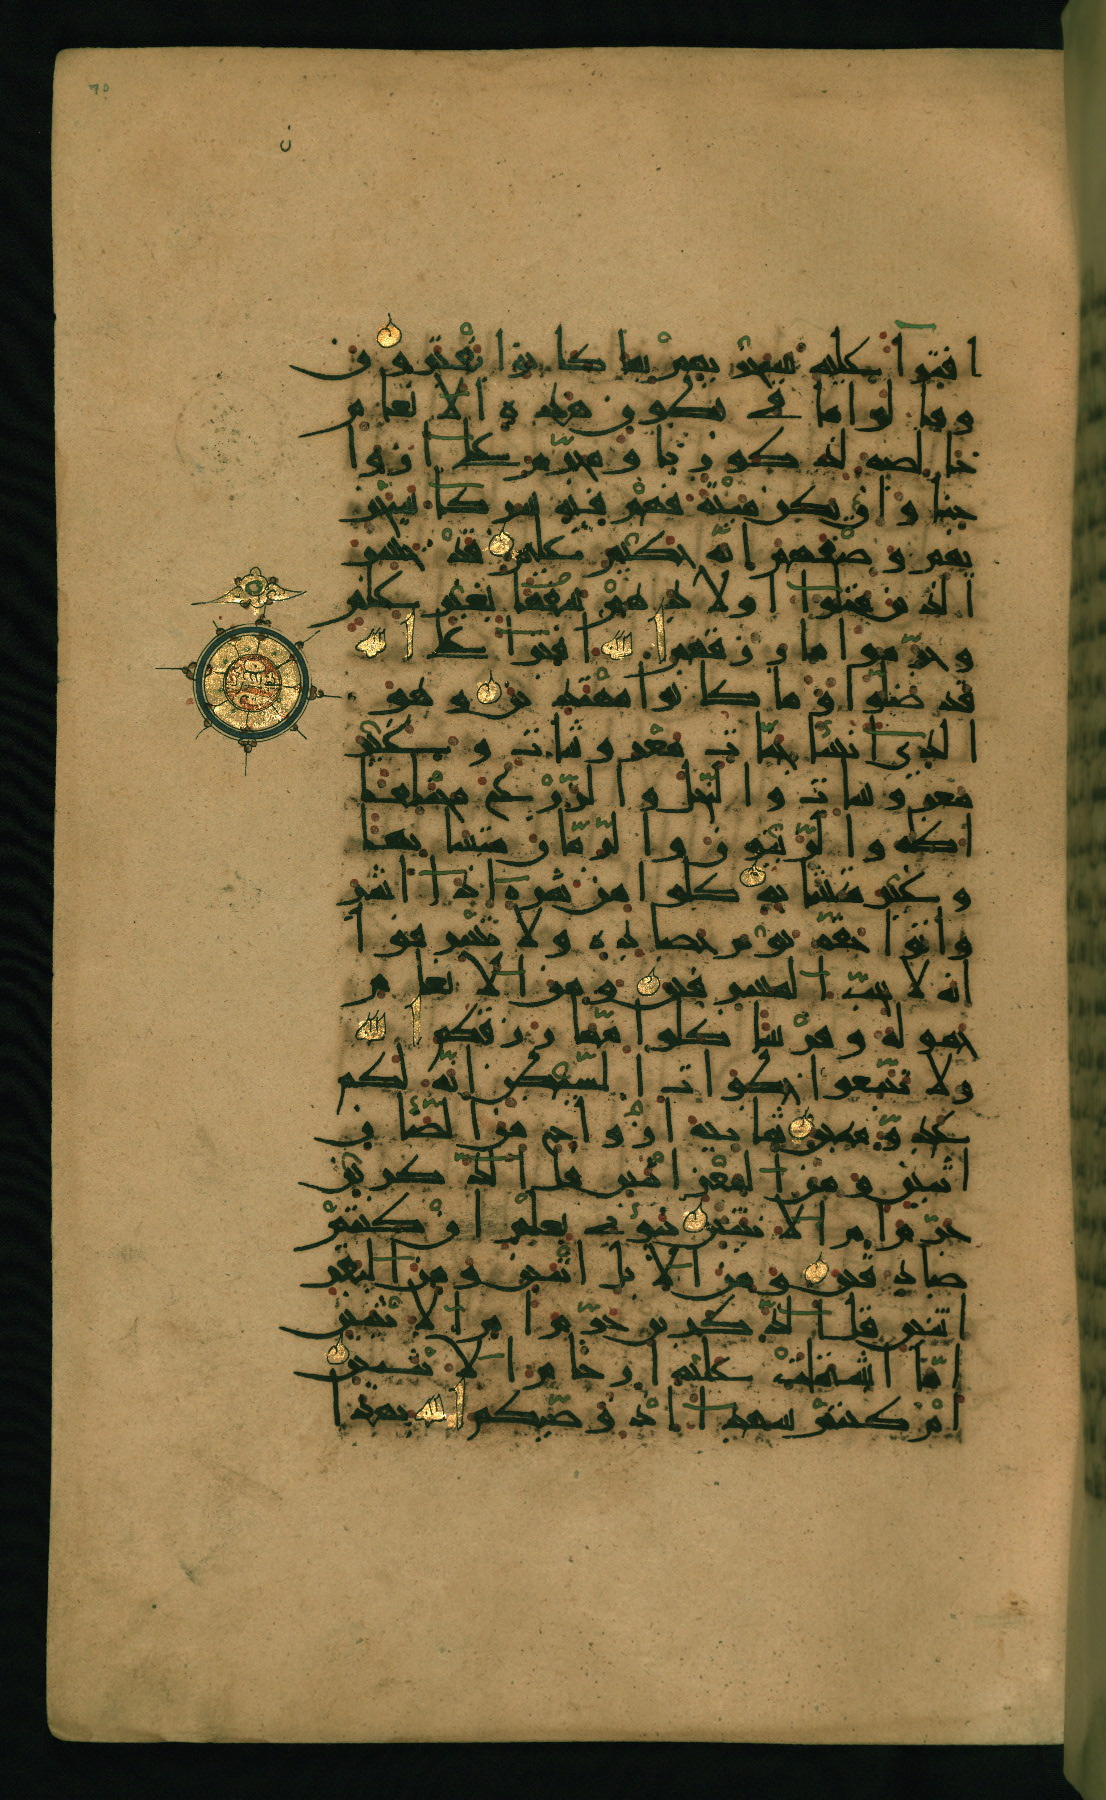 افترا عليه سيجزيهم بما كانوا يفترون
وقالوا ما في بطون هذه الانعام
خالصة لذكورنا ومحرم على ازوا
جنا وان يكن ميتة فهم فيه شركا سيجز
يهم وصفهم انه حكيم عليم قد خسر
الذين قتلوا اولادهم سفها بغير علم
وحرموا ما رزقهم الله افترا على الله
قد ضلوا وما كانوا مهتدين وهو
الذي انشا جنات معروشات وغير
معروشات والنخل والزرع مختلفا
اكله والزيتون والرمان متشابها
وغير متشابه كلوا من ثمره اذا اثمر
واتوا حقه يوم حصاده ولا تسرفوا
انه لا يحب المسرفين ومن الانعام
حمولة وفرشا كلوا مما رزقكم الله
ولا تتبعوا خطوات الشيطن انه لكم
عدو مبين ثمانية ازواج من الضان
اثنين ومن المعز اثنين قل الذكرين
حرم ام الانثيين نبوني بعلم ان كنتم
صادقين ومن الابل اثنين ومن البقر
اثنين قل الذكرين حرم ام الانثيين
اما اشتملت عليه ارحام الانثيين
ام كنتم شهدا اذ وصيكم الله بهذا